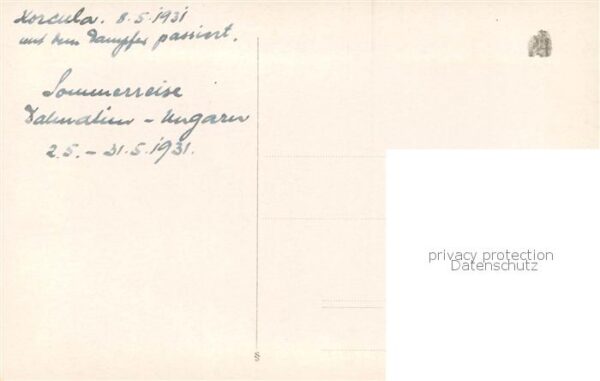 Korcula. 8.5.1931
mit dem Dampfer passiert.
Sommerreise
Dalmatien - Ungarn
2.5. - 31.5.1931.
privacy protection
Datenschutz
§